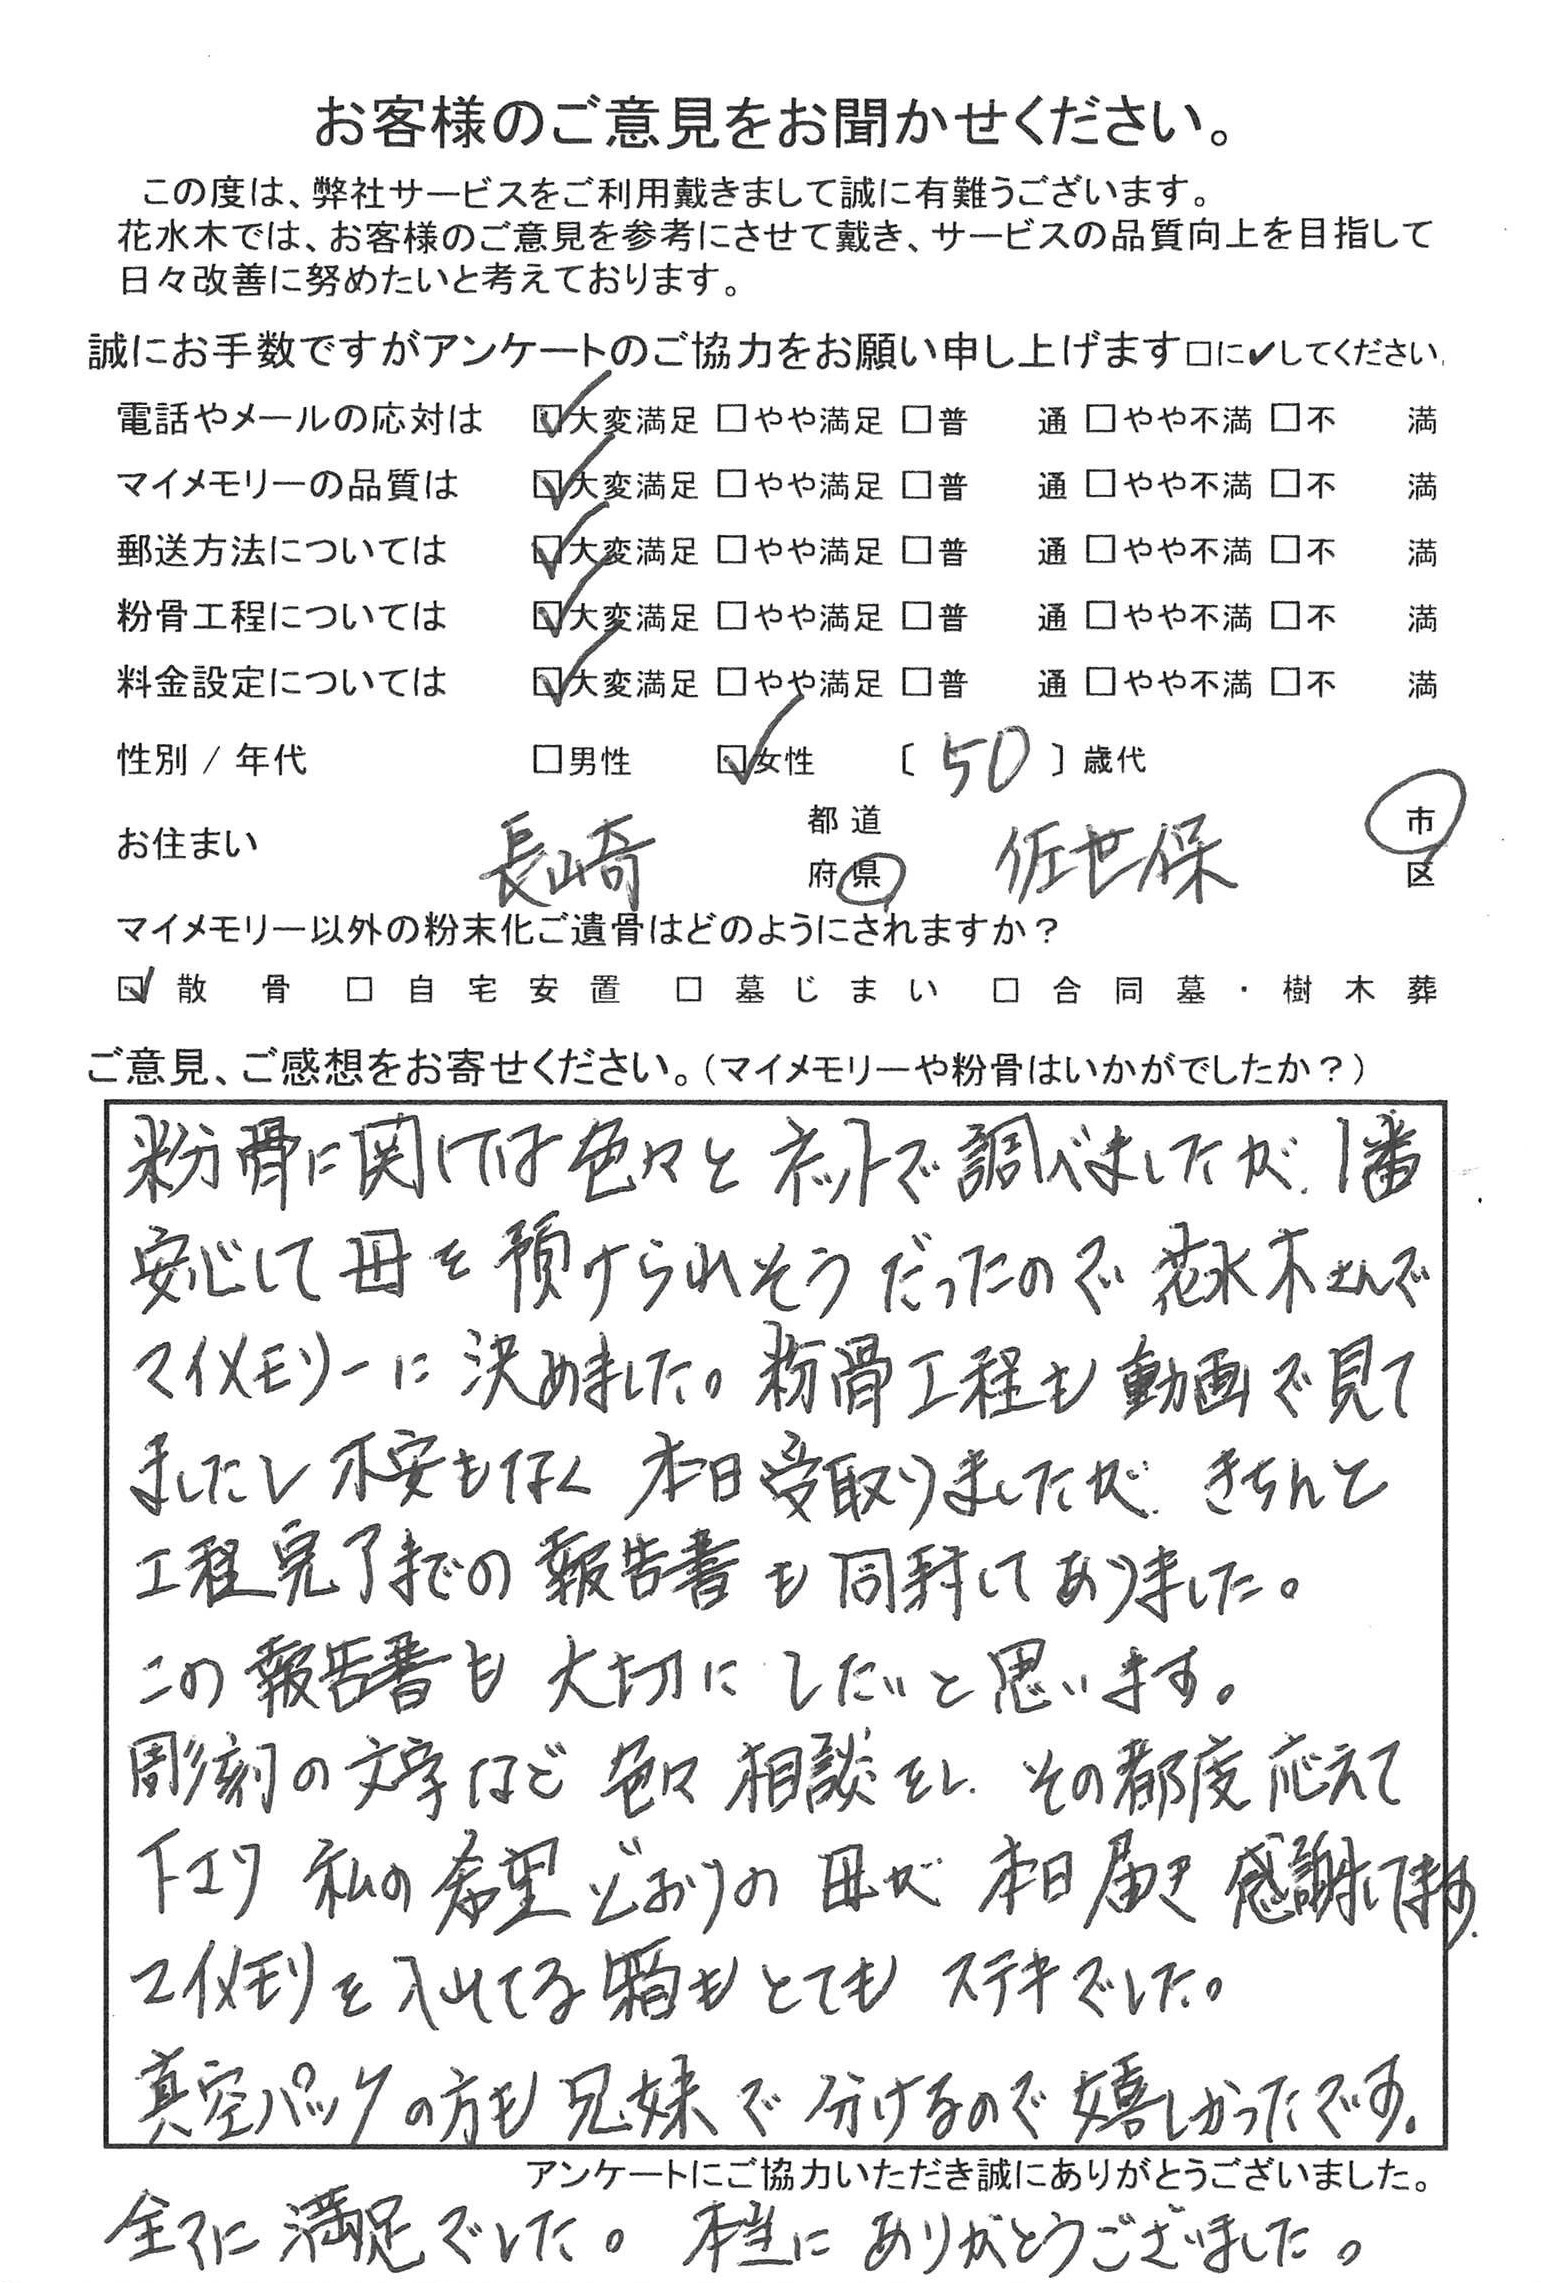 お客様のご意見をお聞かせください。
この度は、弊社サービスをご利用戴きまして誠に有難うございます。
花水木では、お客様のご意見を参考にさせて戴き、サービスの品質向上を目指して
日々改善に努めたいと考えております。
誠にお手数ですがアンケートのご協力をお願い申し上げます□に✔してください。
電話やメールの応対は ☑大変満足 □やや満足 □普 通 □やや不満 □不 満
マイメモリーの品質は ☑大変満足 □やや満足 □普 通 □やや不満 □不 満
郵送方法については ☑大変満足 □やや満足 □普 通 □やや不満 □不 満
粉骨工程については ☑大変満足 □やや満足 □普 通 □やや不満 □不 満
料金設定については ☑大変満足 □やや満足 □普 通 □やや不満 □不 満
性別 / 年代 □男性 ☑女性 〔 50 〕歳代
お住まい 長崎 都道府県 佐世保 市区
マイメモリー以外の粉末化ご遺骨はどのようにされますか?
☑散骨 □自宅安置 □墓じまい □合同墓・樹木葬
ご意見、ご感想をお寄せください。(マイメモリーや粉骨はいかがでしたか?)
粉骨に関けては色々とネットで調べましたが、1番
安心して母を預けられそうだったので花水木さんで
マイメモリーに決めました。粉骨工程も動画で見て
ましたし不安もなく本日受取りましたが、きちんと
工程完了までの報告書も同封してありました。
この報告書も大切にしたいと思います。
彫刻の文字など色々相談をし、その都度応えて
下エリ私の希望どおりの母が本日届き感謝してます。
マイメモリを入れてる箱もとてもステキでした。
真空パックの方も兄妹で分けるので嬉しかったです。
アンケートにご協力いただき誠にありがとうございました。
全てに満足でした。本当にありがとうございました。